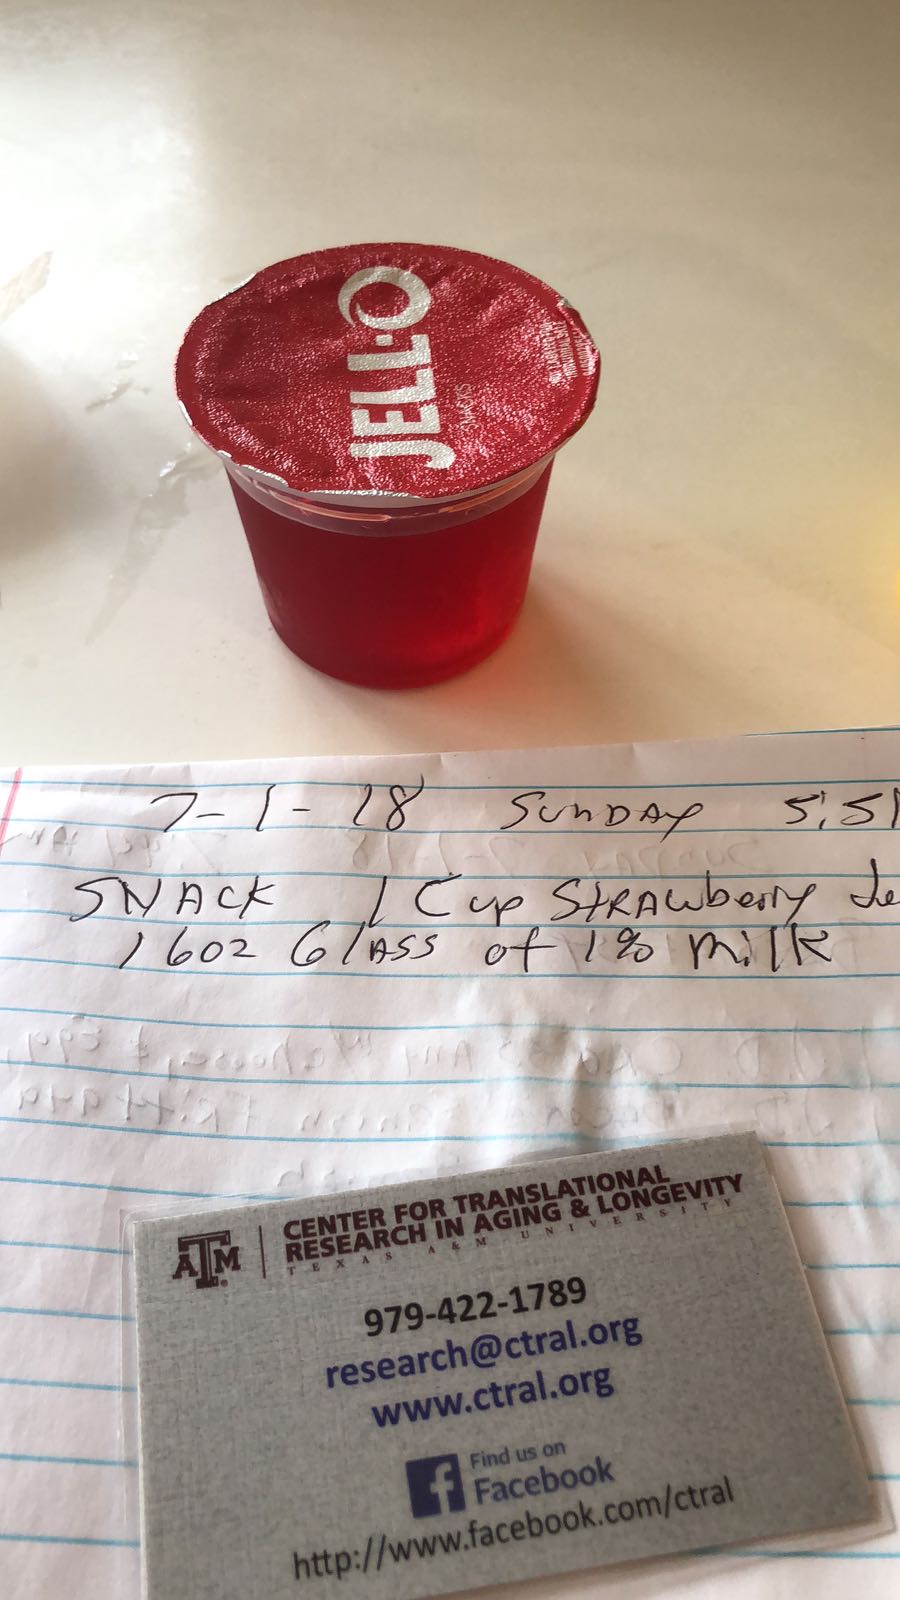 JELL-O
7-1-18 SUNDAY 5:51
SNACK 1 Cup STRAWberry Je
1 6oz GlASS of 1% Milk
ATM
CENTER FOR TRANSLATIONAL
RESEARCH IN AGING & LONGEVITY
TEXAS A&M UNIVERSITY
979-422-1789
research@ctral.org
www.ctral.org
f Find us on
Facebook
http://www.facebook.com/ctral